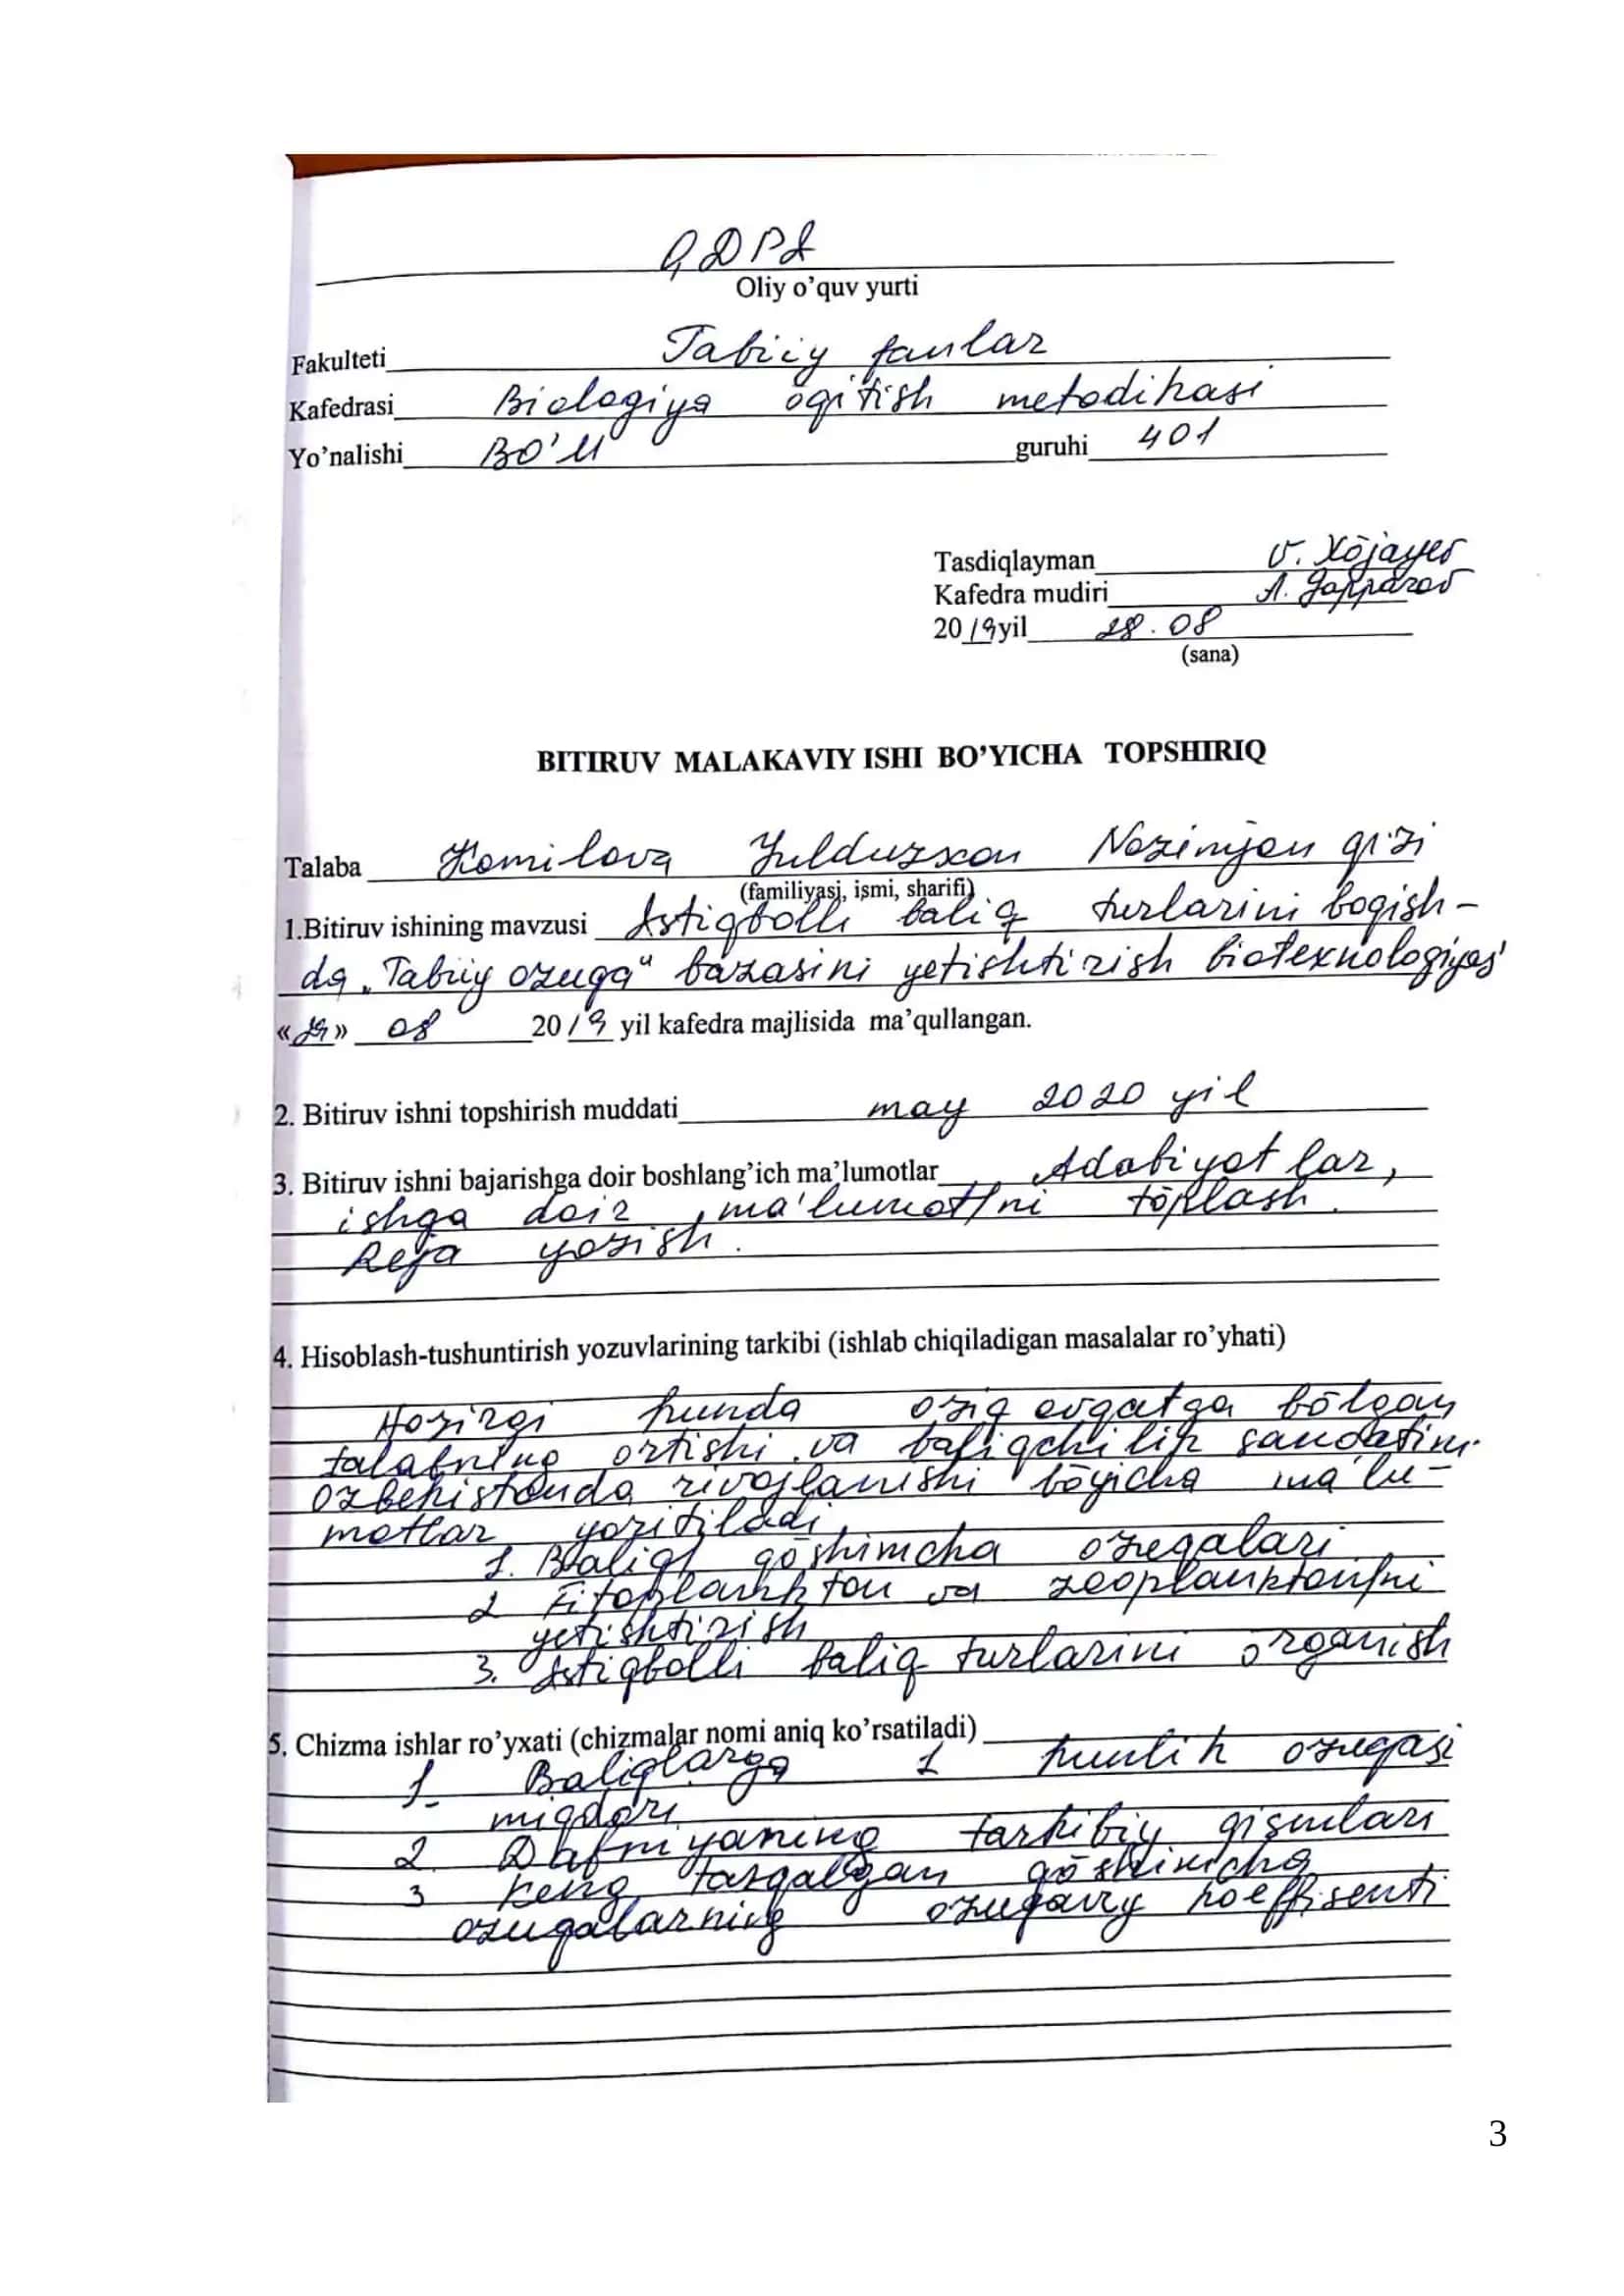 QDPI
Oliy o’quv yurti
Fakulteti Tabiiy fanlar
Kafedrasi Biologiya o̅qitish metodikasi
Yo’nalishi BO'M guruhi 401
Tasdiqlayman V. Xo̅jayev
Kafedra mudiri A. Gapparov
2019yil 28.08
(sana)
BITIRUV MALAKAVIY ISHI BO’YICHA TOPSHIRIQ
Talaba Komilova Yulduzxon Nozimjon qi'zi
(familiyasi, ismi, sharifi)
1.Bitiruv ishining mavzusi Istiqbolli baliq turlarini boqish-
da „Tabiiy ozuqa“ bazasini yetishtirish biotexnologiyasi
«28» 08 2019 yil kafedra majlisida ma’qullangan.
2. Bitiruv ishni topshirish muddati may 2020 yil
3. Bitiruv ishni bajarishga doir boshlang’ich ma’lumotlar Adabiyotlar,
ishga doir ma'lumotlni to̅plash.
Reja yozish.
4. Hisoblash-tushuntirish yozuvlarining tarkibi (ishlab chiqiladigan masalalar ro’yhati)
Hozirgi kunda oziq ovqatga bo̅lgan
talabning ortishi va baliqchilik sanoatini
ozbekistonda rivojlanishi bo̅yicha ma'lu-
motlar yoritiladi.
1. Baliq qo̅shimcha ozuqalari
2 Fitoplankton va zooplanktonni
yetishtirish
3. Istiqbolli baliq turlarini o̅rganish
5. Chizma ishlar ro’yxati (chizmalar nomi aniq ko’rsatiladi)
1. Baliqlarga 1 kunlik ozuqasi
miqdori
2. Dafniyaning tarkibiy qismlari
3 Keng tarqalgan qo̅shimcha
ozuqalarning ozuqaviy koeffisenti
3